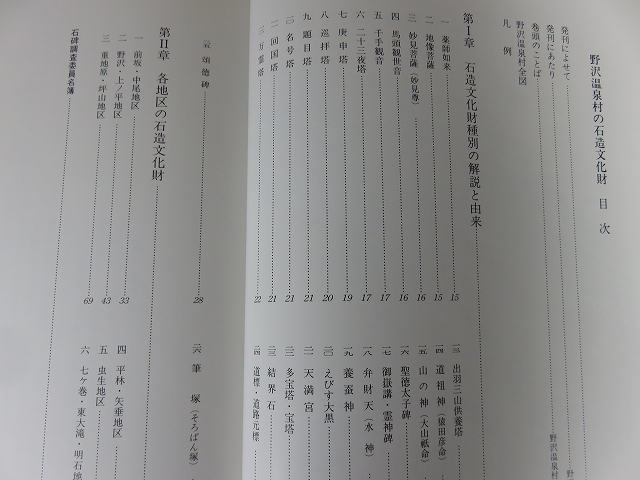 野沢温泉村の石造文化財　目　次
発刊によせて
発刊にあたり
巻頭のことば
野沢温泉村全図
凡　例
第Ⅰ章　石造文化財種別の解説と由来
一　薬師如来 15
二　地像菩薩 15
三　妙見菩薩（妙見尊） 16
四　馬頭観世音 16
五　千手観音 17
六　二十三夜塔 17
七　庚申塔 19
八　巡拝塔 20
九　題目塔 21
一〇　名号塔 21
一一　回国塔 21
一二　万霊塔 22
一三　出羽三山供養塔
一四　道祖神（猿田彦命）
一五　山の神（大山祇命）
一六　聖徳太子碑
一七　御嶽講・霊神碑
一八　弁財天（水　神）
一九　養蚕神
二〇　えびす大黒
二一　天満宮
二二　多宝塔・宝塔
二三　結界石
二四　道標・道路元標
二五　頌徳碑 28
二六　筆　塚（そろばん塚）
第Ⅱ章　各地区の石造文化財
一　前坂・中尾地区 33
二　野沢・上ノ平地区 43
三　重地原・坪山地区 69
四　平林・矢垂地区
五　虫生地区
六　七ケ巻・東大滝・明石地
石碑調査委員名簿
野
野沢温泉村